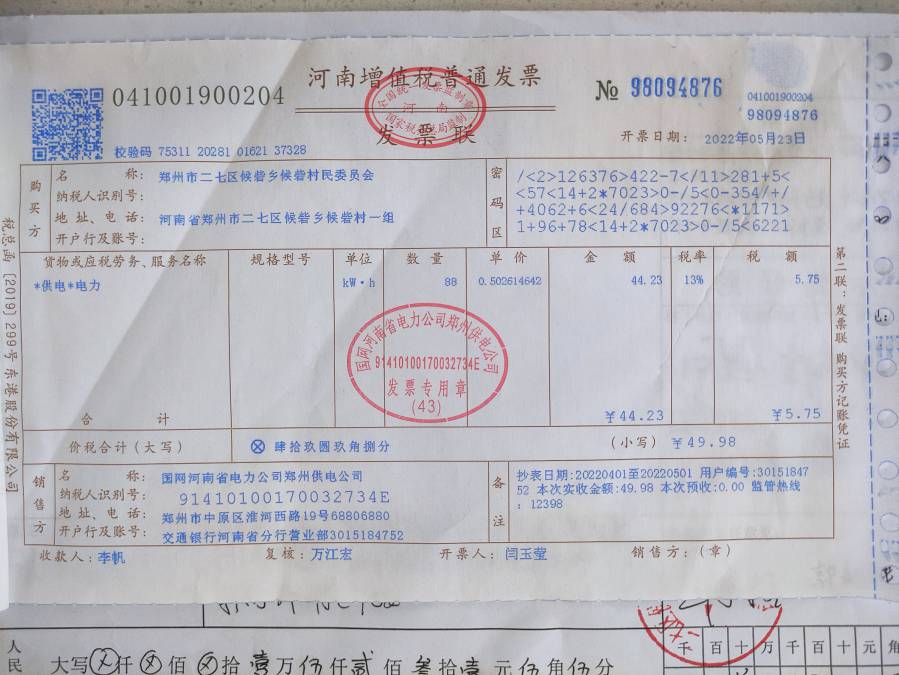 河南增值税普通发票
发票联
全国统一发票监制章
河南
国家税务总局监制
041001900204
校验码 75311 20281 01621 37328
№ 98094876
041001900204
98094876
开票日期: 2022年05月23日
购买方
名称: 郑州市二七区候砦乡候砦村民委员会
纳税人识别号:
地址、电话: 河南省郑州市二七区候砦乡候砦村一组
开户行及账号:
密码区
/<2>126376>422-7</11>281+5<
<57<14+2*7023>0-/5<0-354/+/
+4062+6<24/684>92276<*1171>
1+96+78<14+2*7023>0-/5<6221
货物或应税劳务、服务名称 规格型号 单位 数量 单价 金额 税率 税额
*供电*电力 kW·h 88 0.502614642 44.23 13% 5.75
国网河南省电力公司郑州供电公司
91410100170032734E
发票专用章
(43)
合计 ¥44.23 ¥5.75
价税合计（大写） ⊗ 肆拾玖圆玖角捌分 （小写） ¥49.98
销售方
名称: 国网河南省电力公司郑州供电公司
纳税人识别号: 91410100170032734E
地址、电话: 郑州市中原区淮河西路19号68806880
开户行及账号: 交通银行河南省分行营业部3015184752
备注
抄表日期:20220401至20220501 用户编号:30151847
52 本次实收金额:49.98 本次预收:0.00 监管热线
: 12398
收款人: 李帆 复核: 万江宏 开票人: 闫玉莹 销售方:（章）
税总函 [2019] 299号 东港股份有限公司
第二联：发票联 购买方记账凭证
人民
大写 仟 佰 拾壹万伍仟贰佰叁拾壹元伍角伍分
千百十万千百十元角